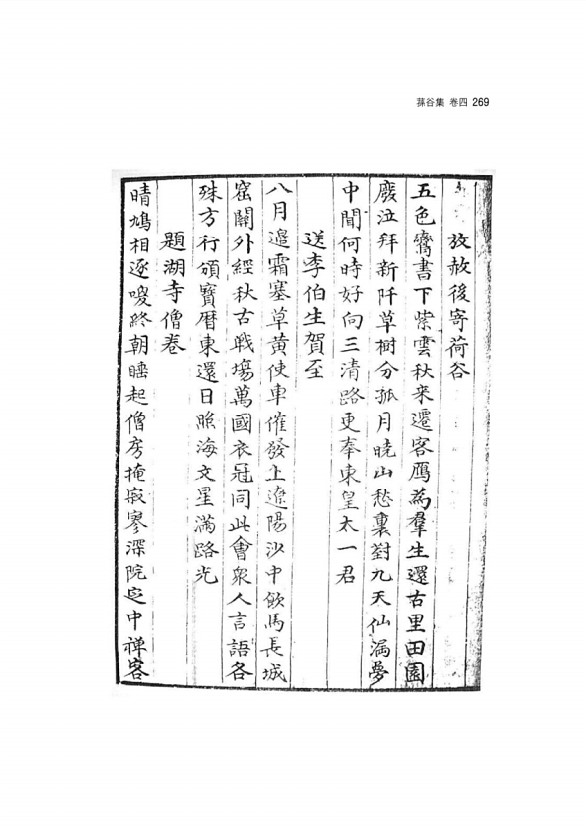 蓀谷集 卷四 269
放赦後寄荷谷
五色書下紫雲秋来遷客鴈為羣生還古里田園
廢泣拜新阡草樹分孤月曉山愁裏對九天仙漏夢
中聞何時好向三清路更奉東皇太一君
送李伯生賀至
八月邊霜塞草黃使車催發上遼陽沙中飲馬長城
窟關外經秋古戰場萬國衣冠同此會衆人言語各
殊方行頒寶曆東還日照海文星滿路光
題湖寺僧卷
晴鳩相逐喚終朝睡起僧房掩寂寥深院定中禪客